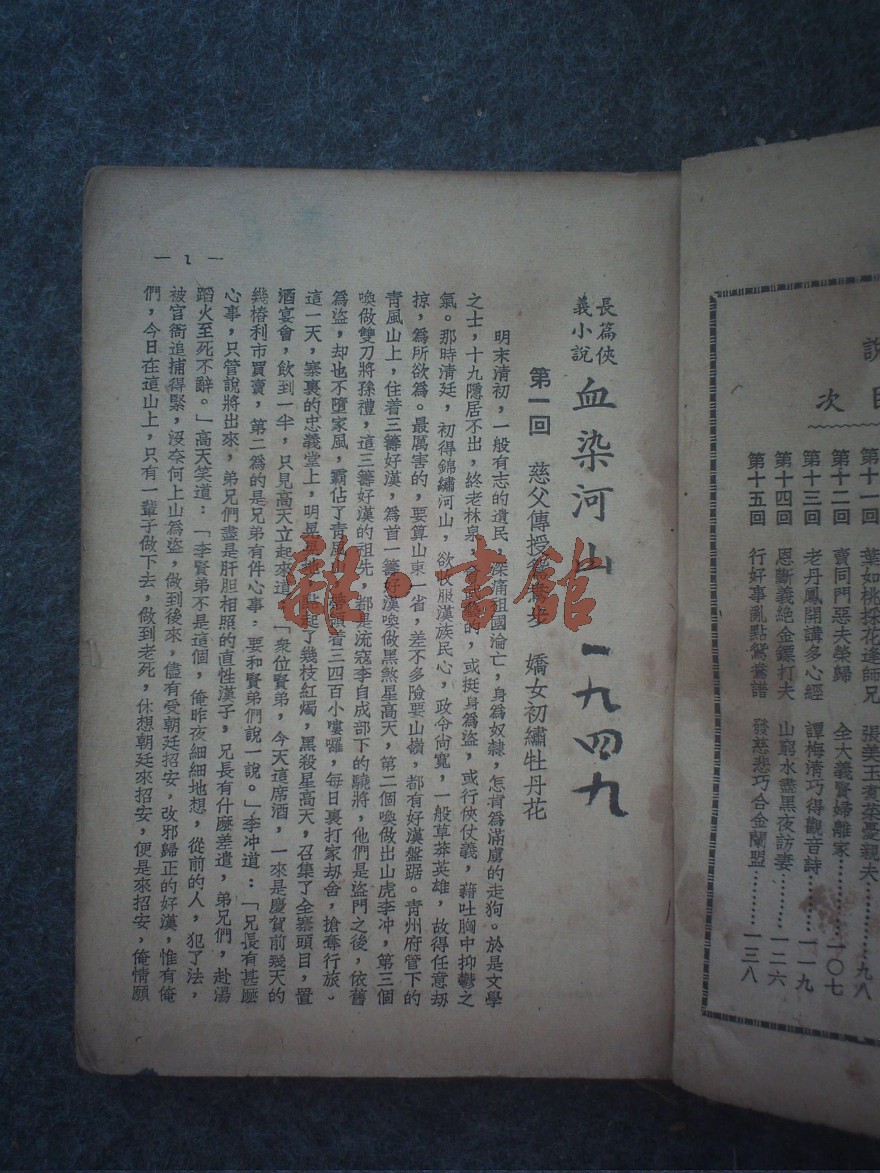 說
目次
第十一回 葉如桃採花逢師兄 張美玉煮茶憂親夫……九八
第十二回 賣同門惡夫榮歸 全大義賢婦離家……一〇七
第十三回 老丹鳳開講多心經 譚梅清巧得觀音詩……一一九
第十四回 恩斷義絕金鏢打夫 山窮水盡黑夜訪妻……一二六
第十五回 行好事亂點鴛鴦譜 發慈悲巧合金蘭盟……一三八
長篇俠義小說
血染河山 一九四九
第一回 慈父傳授 嬌女初繡牡丹花
明末清初，一般有志的遺民，深痛祖國淪亡，身爲奴隸，怎肯爲滿虜的走狗。於是文學
之士，十九隱居不出，終老林泉，的，或挺身爲盜，或行俠仗義，藉吐胸中抑鬱之
氣。那時清廷，初得錦繡河山，欲收服漢族民心，政令尙寬，一般草莽英雄，故得任意劫
掠，爲所欲爲。最厲害的，要算山東一省，差不多險要山嶺，都有好漢盤踞。青州府管下的
青風山上，住着三籌好漢，爲首一籌好漢喚做黑煞星高天，第二個喚做出山虎李冲，第三個
喚做雙刀將孫禮，這三籌好漢的祖先，都是流寇李自成部下的驍將，他們是盜門之後，依舊
爲盜，却也不墮家風，霸佔了青風山，着三四百小嘍囉，每日裏打家劫舍，搶奪行旅。
這一天，寨裏的忠義堂上，明晃晃地點起了幾枝紅燭，黑殺星高天，召集了全寨頭目，置
酒宴會，飮到一半，只見高天立起來道：「衆位賢弟，今天這席酒，一來是慶賀前幾天的
幾樁利市買賣，第二爲的是兄弟有件心事，要和賢弟們說一說。」李冲道：「兄長有甚麼
心事，只管說將出來，弟兄們盡是肝胆相照的直性漢子，兄長有什麼差遣，弟兄們，赴湯
蹈火至死不辭。」高天笑道：「李賢弟不是這個，俺昨夜細細地想，從前的人，犯了法，
被官衙追捕得緊，沒奈何上山爲盜，做到後來，儘有受朝廷招安，改邪歸正的好漢，惟有俺
們，今日在這山上，只有一輩子做下去，做到老死，休想朝廷來招安，便是來招安，俺情願
— 1 —
雜·書館